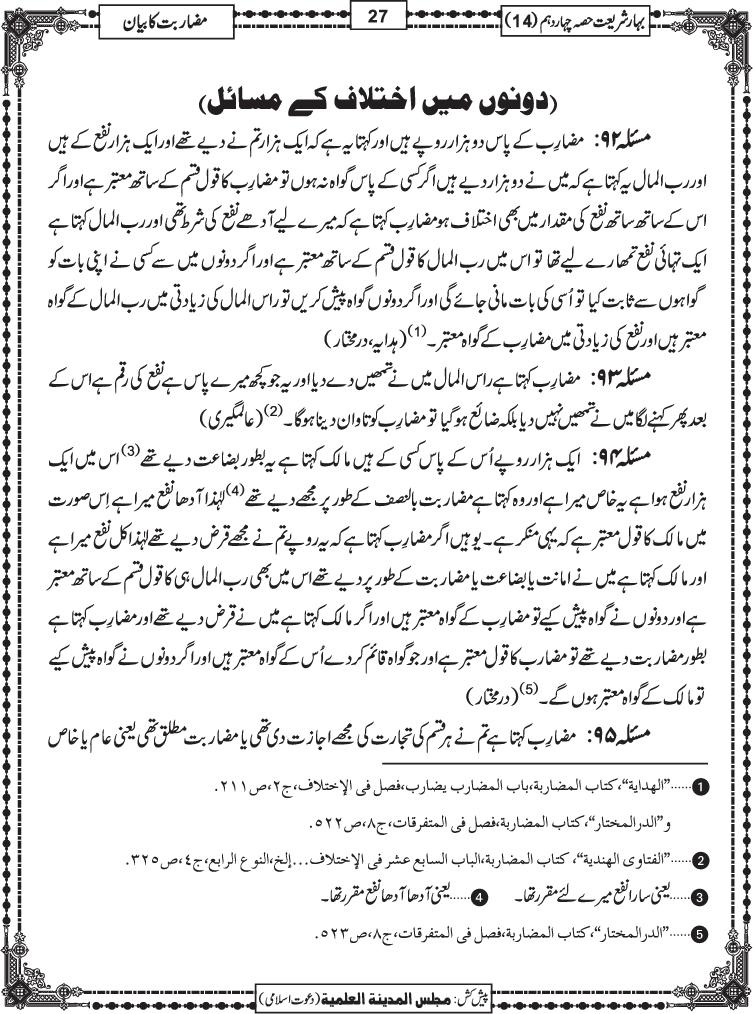 بہارِ شریعت حصہ چہاردہم (14)
27
مضاربت کا بیان
(دونوں میں اختلاف کے مسائل)
مسئلہ ۹۲: مضارِب کے پاس دو ہزار روپے ہیں اور کہتا یہ ہے کہ ایک ہزار تم نے دیے تھے اور ایک ہزار نفع کے ہیں
اور رب المال یہ کہتا ہے کہ میں نے دو ہزار دیے ہیں اگر کسی کے پاس گواہ نہ ہوں تو مضارِب کا قول قسم کے ساتھ معتبر ہے اور اگر
اس کے ساتھ ساتھ نفع کی مقدار میں بھی اختلاف ہو مضارِب کہتا ہے کہ میرے لیے آدھے نفع کی شرط تھی اور رب المال کہتا ہے
ایک تہائی نفع تمھارے لیے تھا تو اس میں رب المال کا قول قسم کے ساتھ معتبر ہے اور اگر دونوں میں سے کسی نے اپنی بات کو
گواہوں سے ثابت کیا تو اُسی کی بات مانی جائے گی اور اگر دونوں گواہ پیش کریں تو راس المال کی زیادتی میں رب المال کے گواہ
معتبر ہیں اور نفع کی زیادتی میں مضارِب کے گواہ معتبر۔(1) (ہدایہ، درمختار)
مسئلہ ۹۳: مضارِب کہتا ہے راس المال میں نے تمھیں دے دیا اور یہ جو کچھ میرے پاس ہے نفع کی رقم ہے اس کے
بعد پھر کہنے لگا میں نے تمھیں نہیں دیا بلکہ ضائع ہوگیا تو مضارِب کو تاوان دینا ہوگا۔(2) (عالمگیری)
مسئلہ ۹۴: ایک ہزار روپے اُس کے پاس کسی کے ہیں مالک کہتا ہے یہ بطور بضاعت دیے تھے(3) اس میں ایک
ہزار نفع ہوا ہے یہ خاص میرا ہے اور وہ کہتا ہے مضاربت بالنصف کے طور پر مجھے دیے تھے(4) لہٰذا آدھا نفع میرا ہے اِس صورت
میں مالک کا قول معتبر ہے کہ یہی منکر ہے۔ یوہیں اگر مضارِب کہتا ہے کہ یہ روپے تم نے مجھے قرض دیے تھے لہٰذا کل نفع میرا ہے
اور مالک کہتا ہے میں نے امانت یا بضاعت یا مضاربت کے طور پر دیے تھے اس میں بھی رب المال ہی کا قول قسم کے ساتھ معتبر
ہے اور دونوں نے گواہ پیش کیے تو مضارِب کے گواہ معتبر ہیں اور اگر مالک کہتا ہے میں نے قرض دیے تھے اور مضارِب کہتا ہے
بطور مضاربت دیے تھے تو مضارِب کا قول معتبر ہے اور جو گواہ قائم کردے اُس کے گواہ معتبر ہیں اور اگر دونوں نے گواہ پیش کیے
تو مالک کے گواہ معتبر ہوں گے۔(5) (درمختار)
مسئلہ ۹۵: مضارِب کہتا ہے تم نے ہر قسم کی تجارت کی مجھے اجازت دی تھی یا مضاربت مطلق تھی یعنی عام یا خاص
1......"الهداية"،كتاب المضاربة،باب المضارب يضارب،فصل فى الإختلاف،ج۲،ص۲۱۱.
و"الدرالمختار"،كتاب المضاربة،فصل فى المتفرقات،ج۸،ص۵۲۲.
2......"الفتاوى الهندية"، كتاب المضاربة،الباب السابع عشر فى الإختلاف...إلخ،النوع الرابع،ج٤،ص۳۲۵.
3......یعنی سارا نفع میرے لئے مقرر تھا۔ 4......یعنی آدھا آدھا نفع مقرر تھا۔
5......"الدرالمختار"،كتاب المضاربة،فصل فى المتفرقات،ج۸،ص۵۲۳.
پیش کش: مجلس المدينة العلمية (دعوت اسلامی)